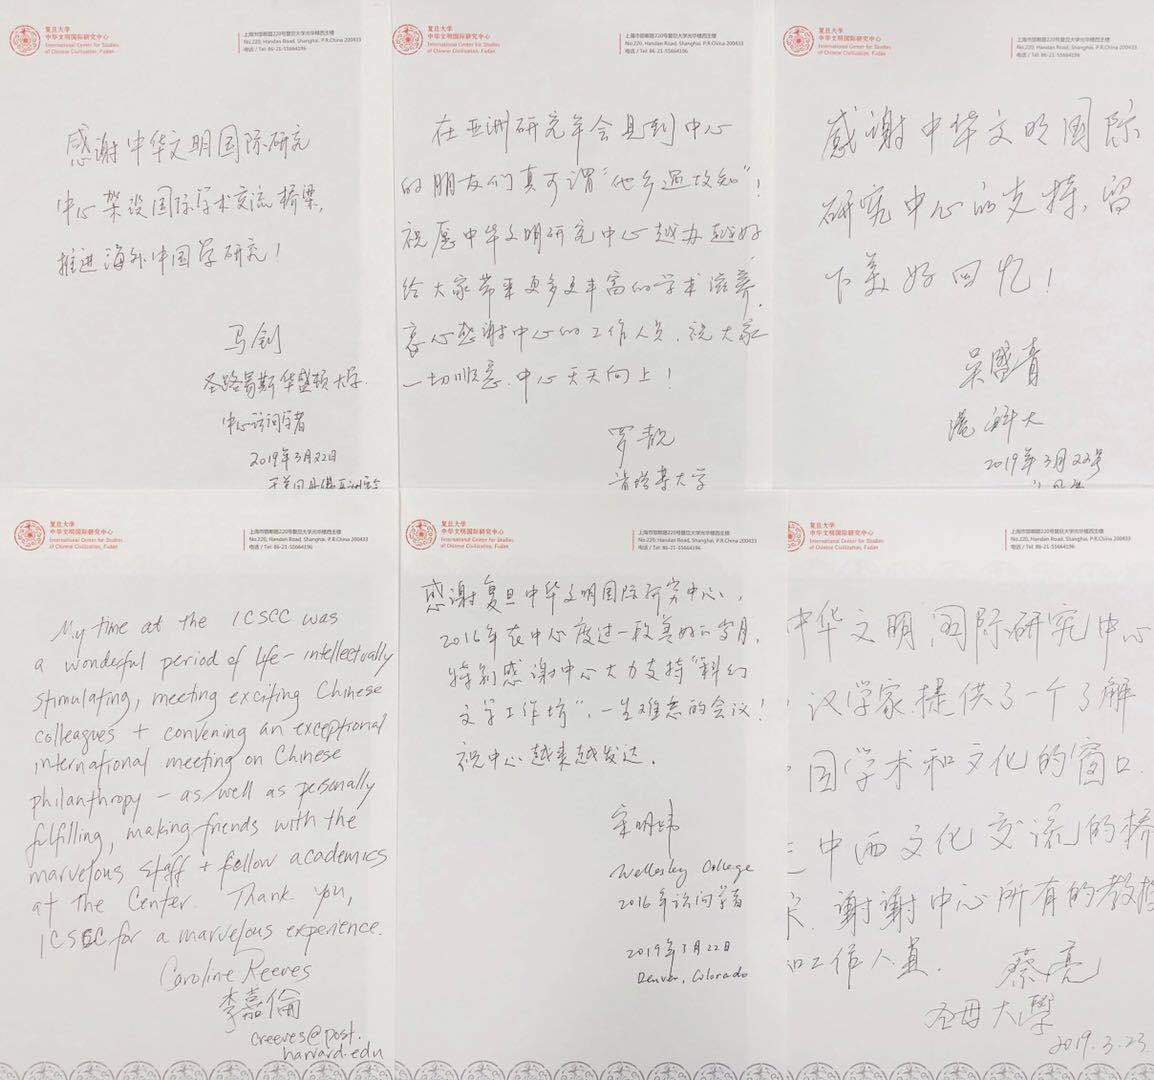 复旦大学
中华文明国际研究中心
International Center for Studies
of Chinese Civilization, Fudan
上海市邯郸路220号复旦大学光华楼西主楼
No.220, Handan Road, Shanghai, P.R.China 200433
电话 / Tel: 86-21-55664196
感谢中华文明国际研究
中心架设国际学术交流桥梁，
推进海外中国学研究！
马钊
圣路易斯华盛顿大学
中心访问学者
2019年3月22日
复旦大学
中华文明国际研究中心
International Center for Studies
of Chinese Civilization, Fudan
上海市邯郸路220号复旦大学光华楼西主楼
No.220, Handan Road, Shanghai, P.R.China 200433
电话 / Tel: 86-21-55664196
在亚洲研究年会见到中心
的朋友们真可谓“他乡遇故知”！
祝愿中华文明研究中心越办越好
给大家带来更多更丰富的学术滋养.
衷心感谢中心的工作人员，祝大家
一切顺意，中心天天向上！
罗靓
肯塔基大学
复旦大学
中华文明国际研究中心
International Center for Studies
of Chinese Civilization, Fudan
上海市邯郸路220号复旦大学光华楼西主楼
No.220, Handan Road, Shanghai, P.R.China 200433
电话 / Tel: 86-21-55664196
感谢中华文明国际
研究中心的支持，留
下美好回忆！
吴盛青
港科大
2019年3月22号
复旦大学
中华文明国际研究中心
International Center for Studies
of Chinese Civilization, Fudan
上海市邯郸路220号复旦大学光华楼西主楼
No.220, Handan Road, Shanghai, P.R.China 200433
电话 / Tel: 86-21-55664196
My time at the ICSCC was
a wonderful period of life - intellectually
stimulating, meeting exciting Chinese
colleagues + convening an exceptional
international meeting on Chinese
philanthropy - as well as personally
fulfilling, making friends with the
marvelous staff + fellow academics
at the Center. Thank you,
ICSCC for a marvelous experience.
Caroline Reeves
李嘉倫
creeves@post.
harvard.edu
复旦大学
中华文明国际研究中心
International Center for Studies
of Chinese Civilization, Fudan
上海市邯郸路220号复旦大学光华楼西主楼
No.220, Handan Road, Shanghai, P.R.China 200433
电话 / Tel: 86-21-55664196
感谢复旦中华文明国际研究中心，
2016年在中心度过一段美好的岁月，
特别感谢中心大力支持“科幻
文学工作坊”，一生难忘的会议！
祝中心越来越发达．
宋明炜
Wellesley College
2016年访问学者
2019年3月22日
Denver, Colorado
复旦大学
中华文明国际研究中心
International Center for Studies
of Chinese Civilization, Fudan
上海市邯郸路220号复旦大学光华楼西主楼
No.220, Handan Road, Shanghai, P.R.China 200433
电话 / Tel: 86-21-55664196
中华文明国际研究中心
汉学家提供了一个了解
国学术和文化的窗口
中西文化交流的桥
谢谢中心所有的教授
和工作人员．
蔡亮
圣母大學
2019.3.23.